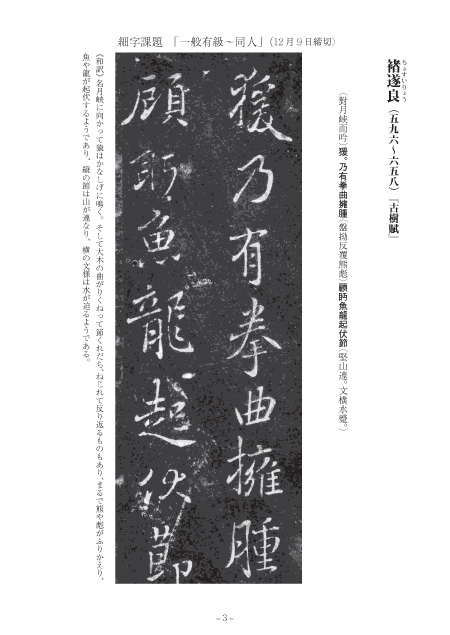 細字課題 「一般有級～同人」（12月９日締切）
褚遂良（五九六～六五八）『古樹賦』
ちょすいりょう
（對月峡而吟）猨。乃有拳曲擁腫（盤拗反覆熊彪）顧眄魚龍起伏節（竪山連。文横水蹙。）
猨乃有拳曲擁腫
顧眄魚龍起伏節
《和訳》名月峡に向かって猿はかなしげに鳴く。そして大木の曲がりくねって節くれだち、ねじれて反り返るものもあり、まるで熊や彪がふりかえり、
魚や龍が起伏するようであり、縦の節は山が連なり、横の文様は水が迫るようである。
－3－